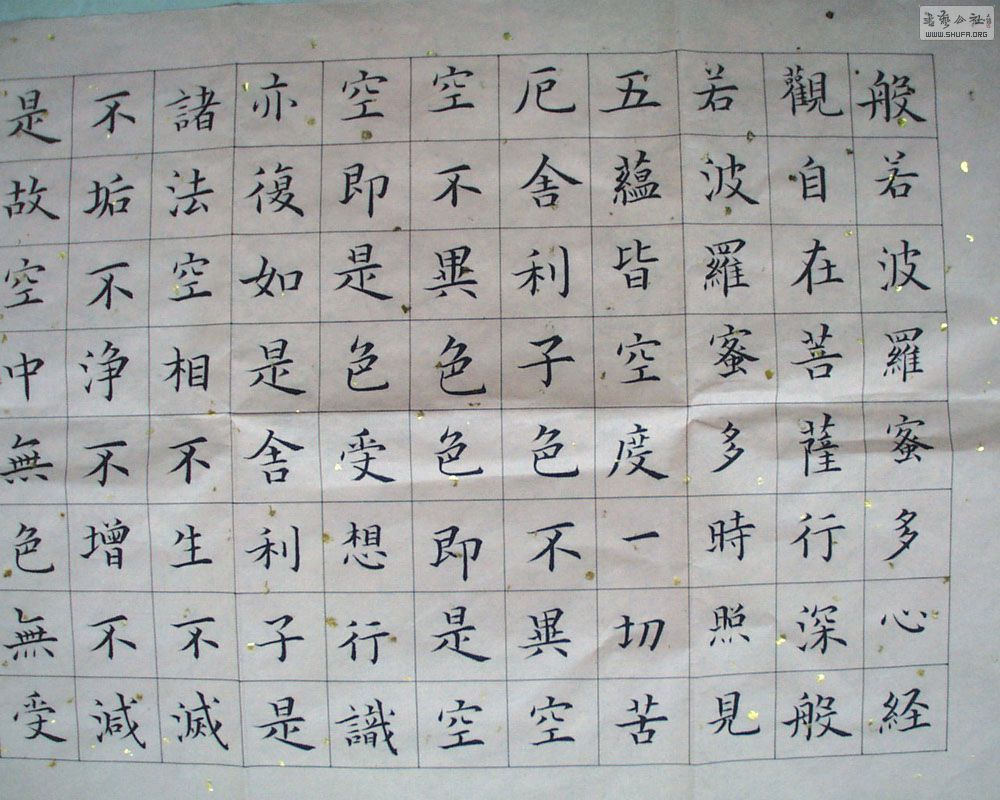 般若波羅蜜多心経
觀自在菩薩行深般
若波羅蜜多時照見
五蘊皆空度一切苦
厄舍利子色不異空
空不異色色即是空
空即是色受想行識
亦復如是舍利子是
諸法空相不生不滅
不垢不浄不增不減
是故空中無色無受
WWW.SHUFA.ORG